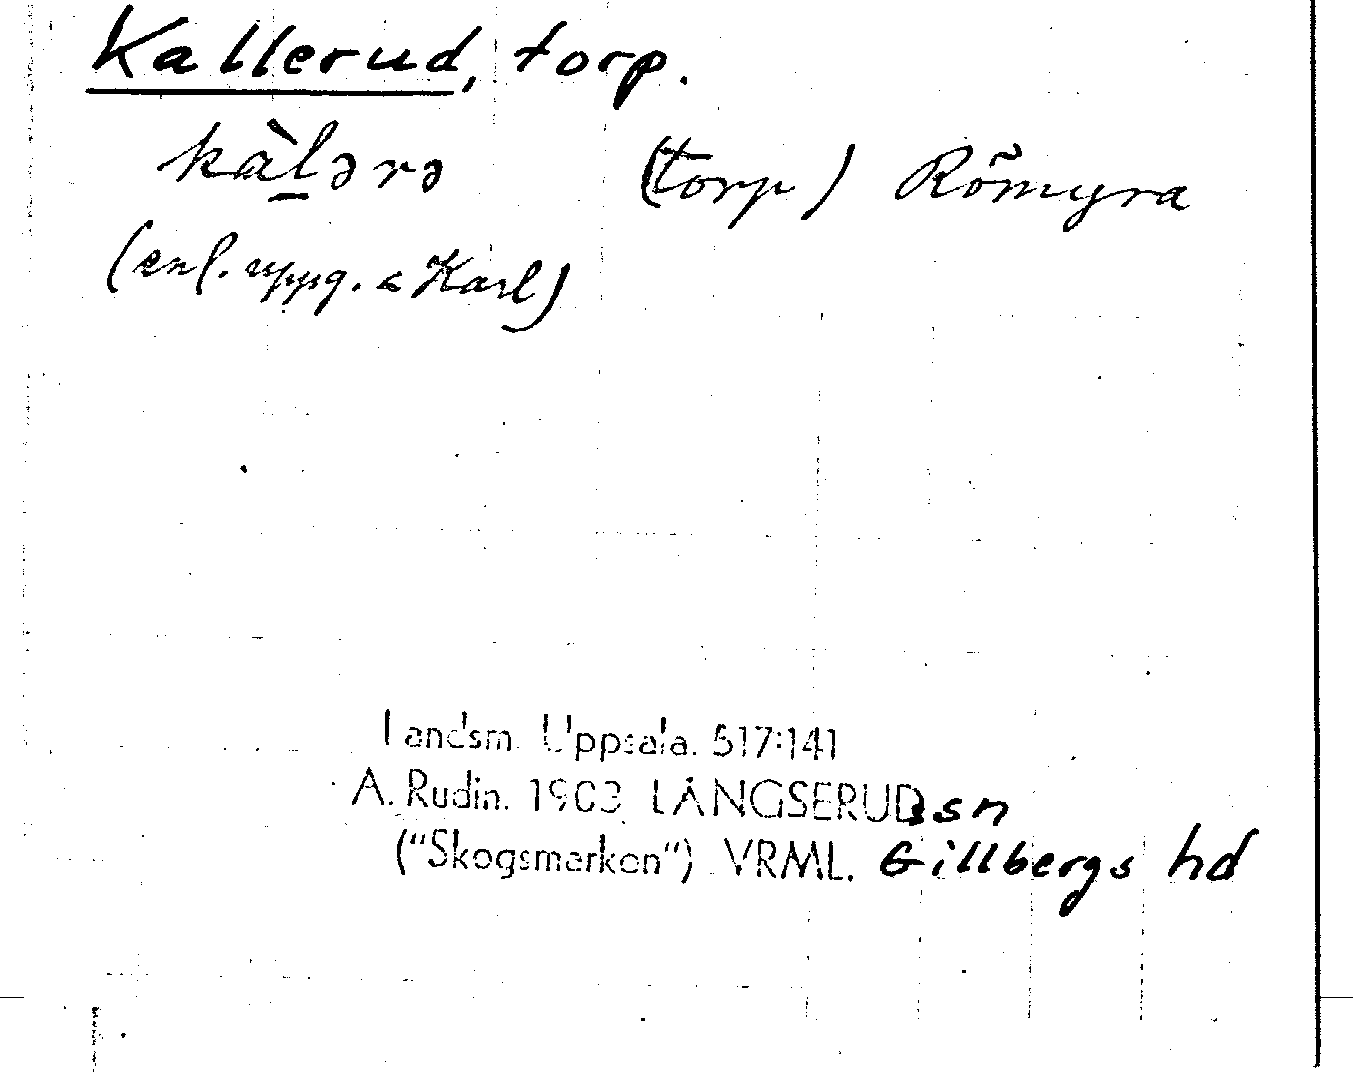 Kallerud, torp.
kàlərə (torp) Römyra
(enl. uppg. a Karl)
Landsm. Uppsala. 517:141
A. Rudin. 1903 LÅNGSERUDs sn
("Skogsmarken") VRML. Gillbergs hd